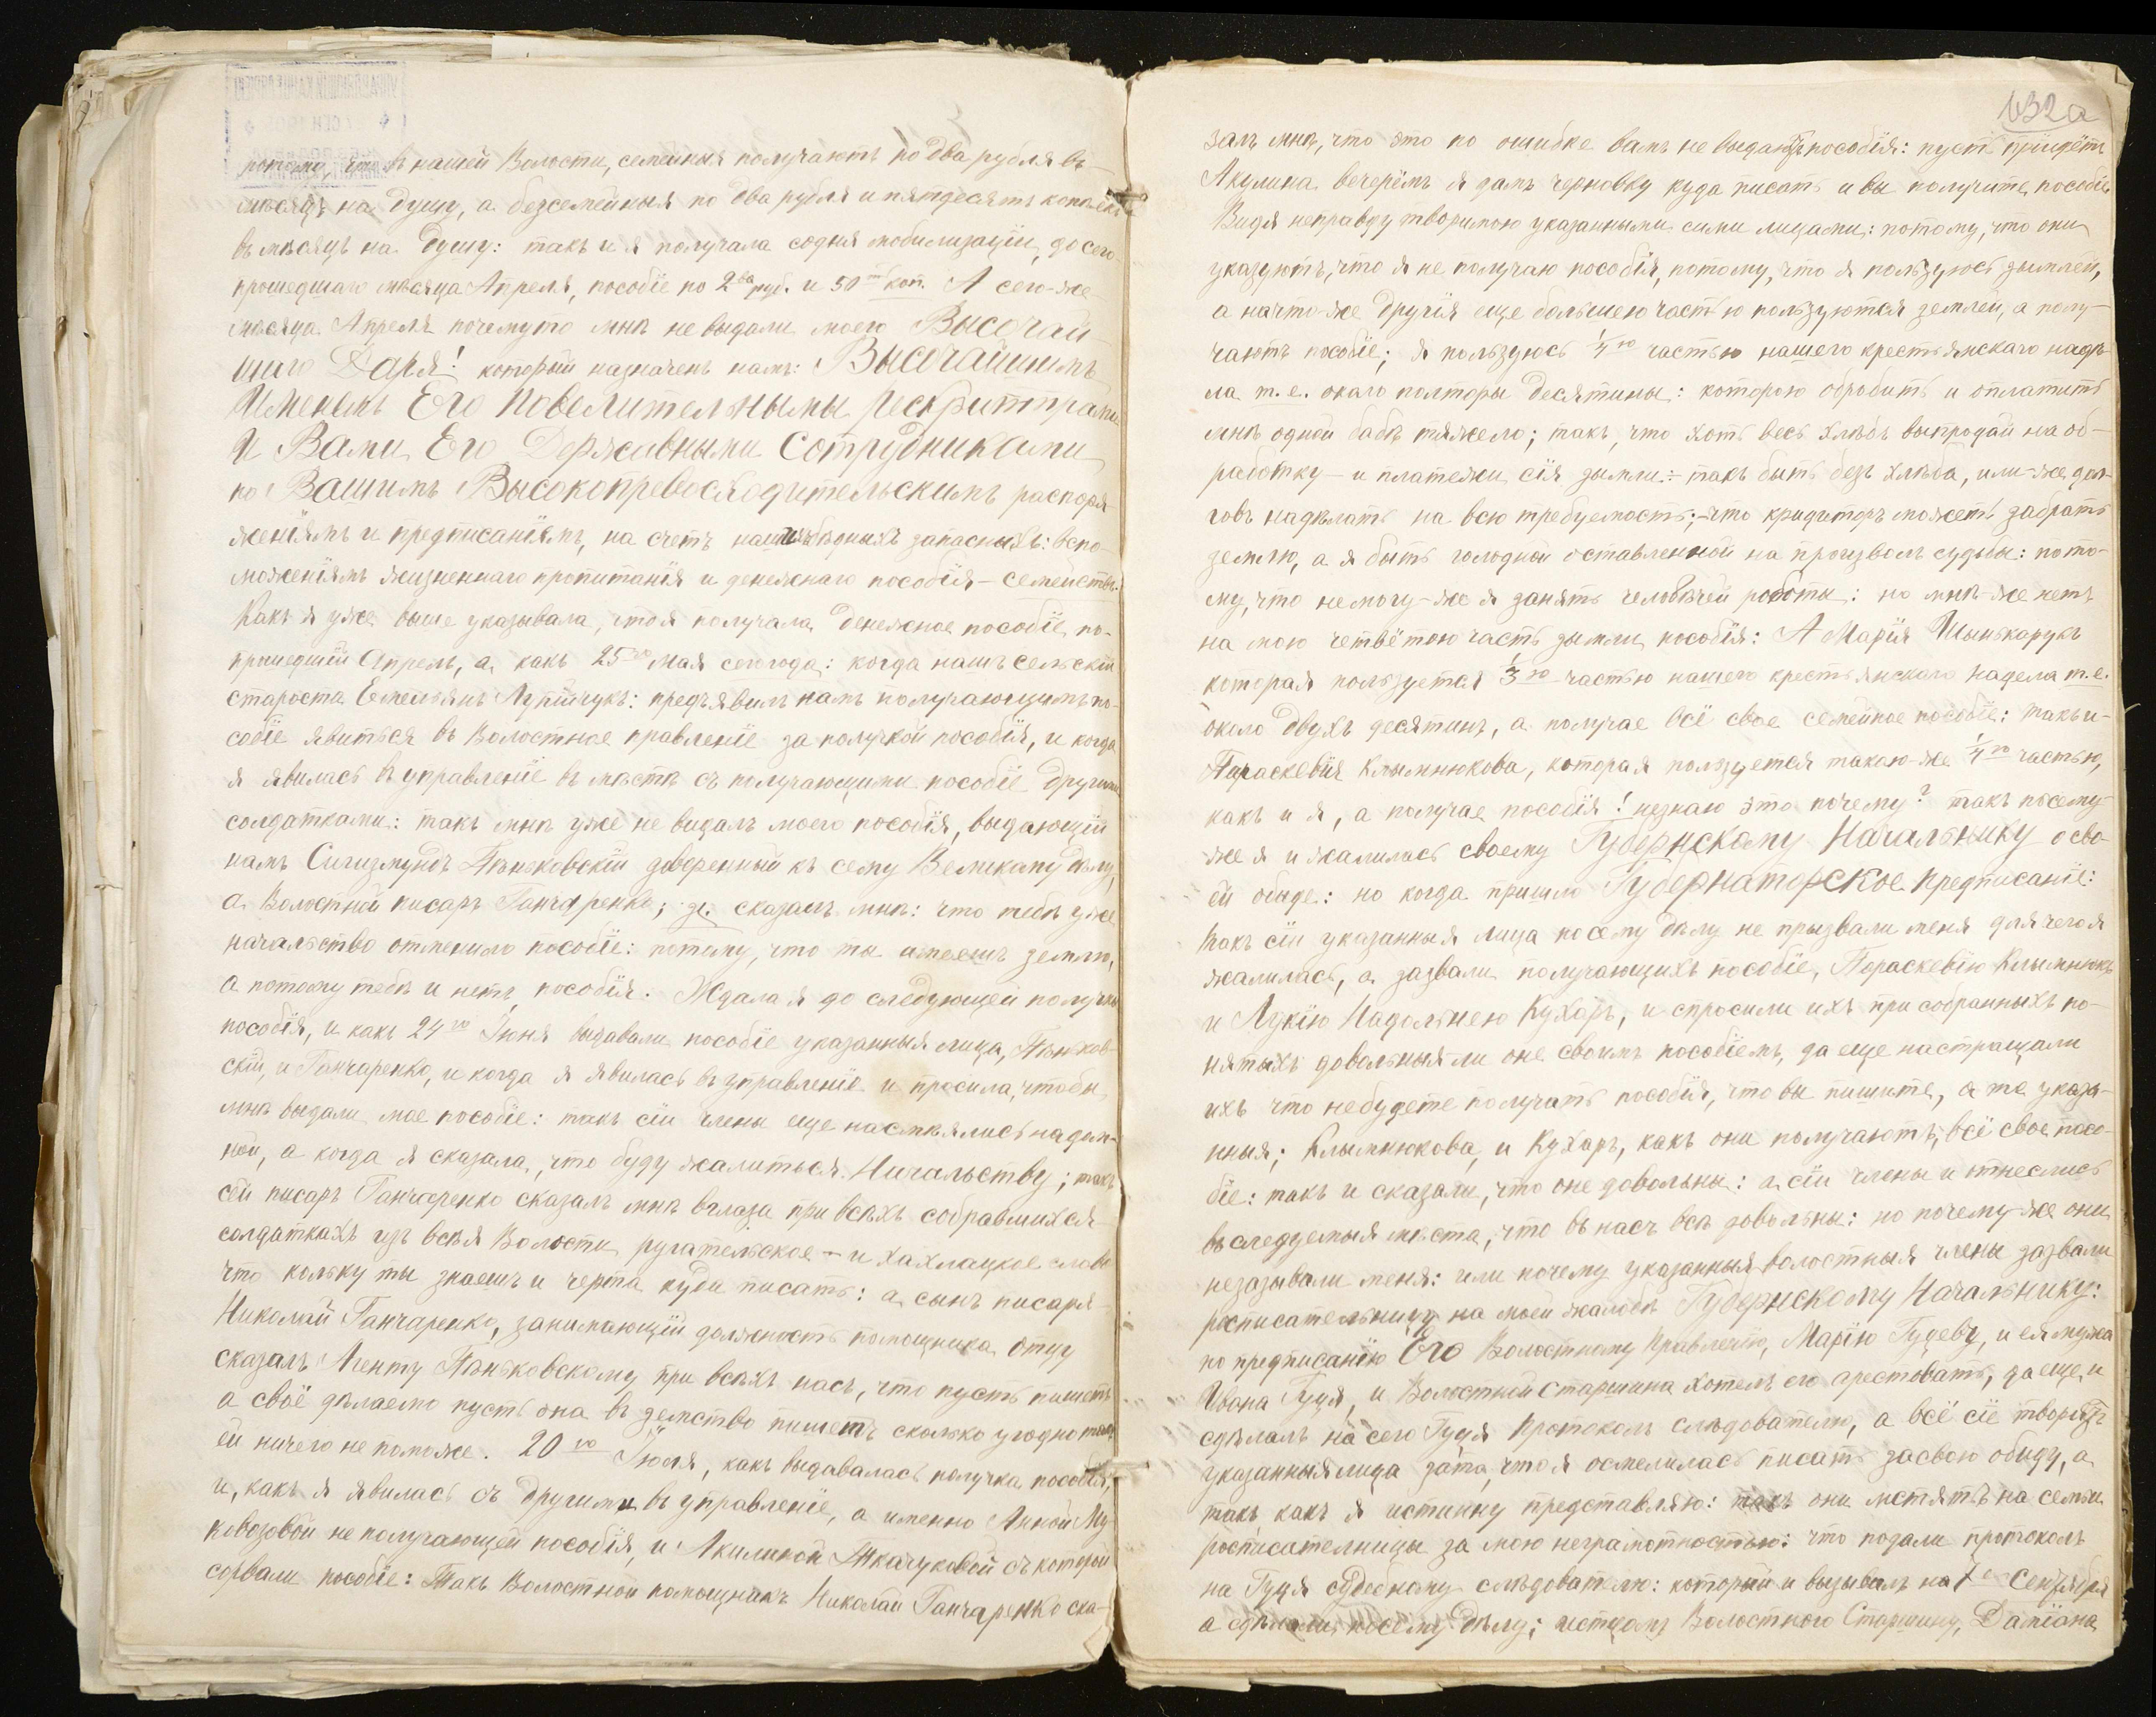 потому, что в нашей Волости, семейныя получаютъ по два рубля въ
мѣсяцъ на душу, а безсемейныя по два рубля и пятдесятъ копѣекъ
въ мѣсяцъ на душу: такъ и я получала содня мобилизаціи, до сего
прошедшаго мѣсяца Апреля, пособіе по 2ва руб. и 50тъ коп. А сего-же
мѣсяца Апреля почемуто мнѣ не выдали моего Высочай
шаго Даря! который назначенъ намъ: Высочайшимъ
Именемъ Его Повелительнымы Рескриптрами
И Вами Его Державными Сотрудниками
по Вашимъ Высокопревосходительскимъ распоря
женіямъ и предписаніямъ, на счетъ нашихъ бѣдныхъ запасныхъ: вспо-
моженіямъ жизненнаго пропитанія и денежнаго пособія - семействъ.
Какъ я уже выше указывала, что я получала денежное пособіе, по-
прошедшій Апрель, а какъ 25го Мая сегогода: когда нашъ Сельскій
староста Емельянъ Лупійчукъ: предъявилъ намъ получающимъ по-
собіе явиться въ Волостное правленіе за получкой пособія, и когда
я явилась въ управленіе въ мѣстѣ съ получающими пособіе другими
солдатками: такъ мнѣ уже не выдалъ моего пособія, выдающій
намъ Сигизмундъ Паньковскій доверенный къ сему Великому дѣлу,
а Волостной писарь Ганчаренко; сказалъ мнѣ: что тебѣ уже
начальство отменило пособіе: потому, что ты имеешъ землю,
а потому тебѣ и нетъ пособія. Ждала я до следующей получки
пособія, и какъ 24го Іюня выдавали пособіе указанныя лица, Паньков-
скій, и Ганчаренко, и когда я явилась въ управленіе и просила, чтобы
мнѣ выдали мое пособіе: такъ сіи члены еще насмѣялись надом-
ной, а когда я сказала, что буду жалиться Начальству; такъ
сей писарь Ганчаренко сказалъ мнѣ вглаза при всѣхъ собравшихся
солдаткахъ изъ всѣя Волости, ругательское - и хахлацкое слово
что кольку ты знаешъ и черта куди писать: а сынъ писаря
Николай Ганчаренко, занимающій должность помощника отцу
сказалъ Агенту Паньковскому при всѣхъ насъ, что пусть пишетъ
а своё дѣлаемо пусть она въ земство пишетъ сколько угодно то
ей ничего не поможе. 20го Іюля, какъ выдавалась получка пособія,
и, какъ я явилась съ другими въ управленіе, а именно Анной Му-
ковозовой не получающей пособія, и Акилиной Ткачуковой съ которой
сорвали пособіе: Такъ Волостной помощникъ Николай Ганчаренко ска-
632а
залъ мнѣ, что это по ошибке вамъ не выдаютъ пособія: пусть прийдётъ
Акулина вечерёмъ я дамъ черновку куда писать и вы получите пособіе
Видя неправду творимою указанными сими лицами: потому, что они
указуютъ, что я не получаю пособія, потому, что я пользуюсь зымлей,
а начто-же другія еще большею частью пользуются землей, а полу-
чаютъ пособіе; я пользуюсь 1/4ю частью нашего крестьянскаго надѣ-
ла т.е. окаго полторы десятины: которою обробить и оплатить
мнѣ одной бабѣ тяжело; такъ, что хоть весь хлѣбъ выпродай на об-
работку - и платежи сія зымли: - такъ быть безъ хлѣба, или-же дол-
говъ надѣлать на всю требуемость; - что кридиторъ можетъ забрать
землю, а я быть голодной оставленной на произволъ судьбы: пото-
му, что немогу-же я занять человѣчей роботы: но мнѣ-же нетъ
на мою четвётою часть зымли пособія: А Марія Шынькарукъ
которая пользуется 1/3ю частью нашего крестьянскаго надела т.е.
около двухъ десятинъ, а получае всё свое семейное пособіе: такъ и-
Параскевія Клымнюкова, которая ползуется такою-же 1/4ю частью,
какъ и я, а получае пособія! незнаю это почему? такъ посему-
же я и жалилась своему Губернскому Начальнику о сво-
ей обыде: но когда пришло Губернаторское предписаніе:
такъ сіи указанныя лица посему дѣлу не прызвали меня для чего я
жалилась, а зазвали получающихъ пособіе, Пораскевію Клымнюкъ
и Лукію Надольнею Кухаръ, и спросили ихъ при собранныхъ по-
нятыхъ довальныя ли оне своимъ пособіемъ, да еще настращали
ихъ что небудете получать пособія, что вы пишите, а те указа-
нныя; Клымнюкова, и Кухаръ, какъ они получаютъ, всё свое посо-
біе: такъ и сказали, что оне довольны: а сіи члены и отнеслись
въ следуемыя мѣста, что въ насъ всѣ довольны: но почему-же они
незазывали меня: или почему указанныя волостныя члены зазвали
росписательницу на моей жалобѣ Губернскому Начальнику:
по предписанію Его Волостному правленію, Марію Гуцеву, и ея мужа
Ивана Гуця, и Волостный Старшина хотелъ его арестовать, да еще и
сдѣлалъ на сего Гуця Протоколъ слѣдователю, а всё сіе творятъ
указанныя лица зато, что я осмелилась писать засвою обиду, а
такъ какъ я истинну представляю: такъ они мстятъ на семьи
росписателницы за мою неграмотностью: что подали протоколъ
на Гуця судебному слѣдователю: который и вызывалъ на 7е Сентября
а сдѣлали посему дѣлу; истцомъ Волостного Старшину, Даміана